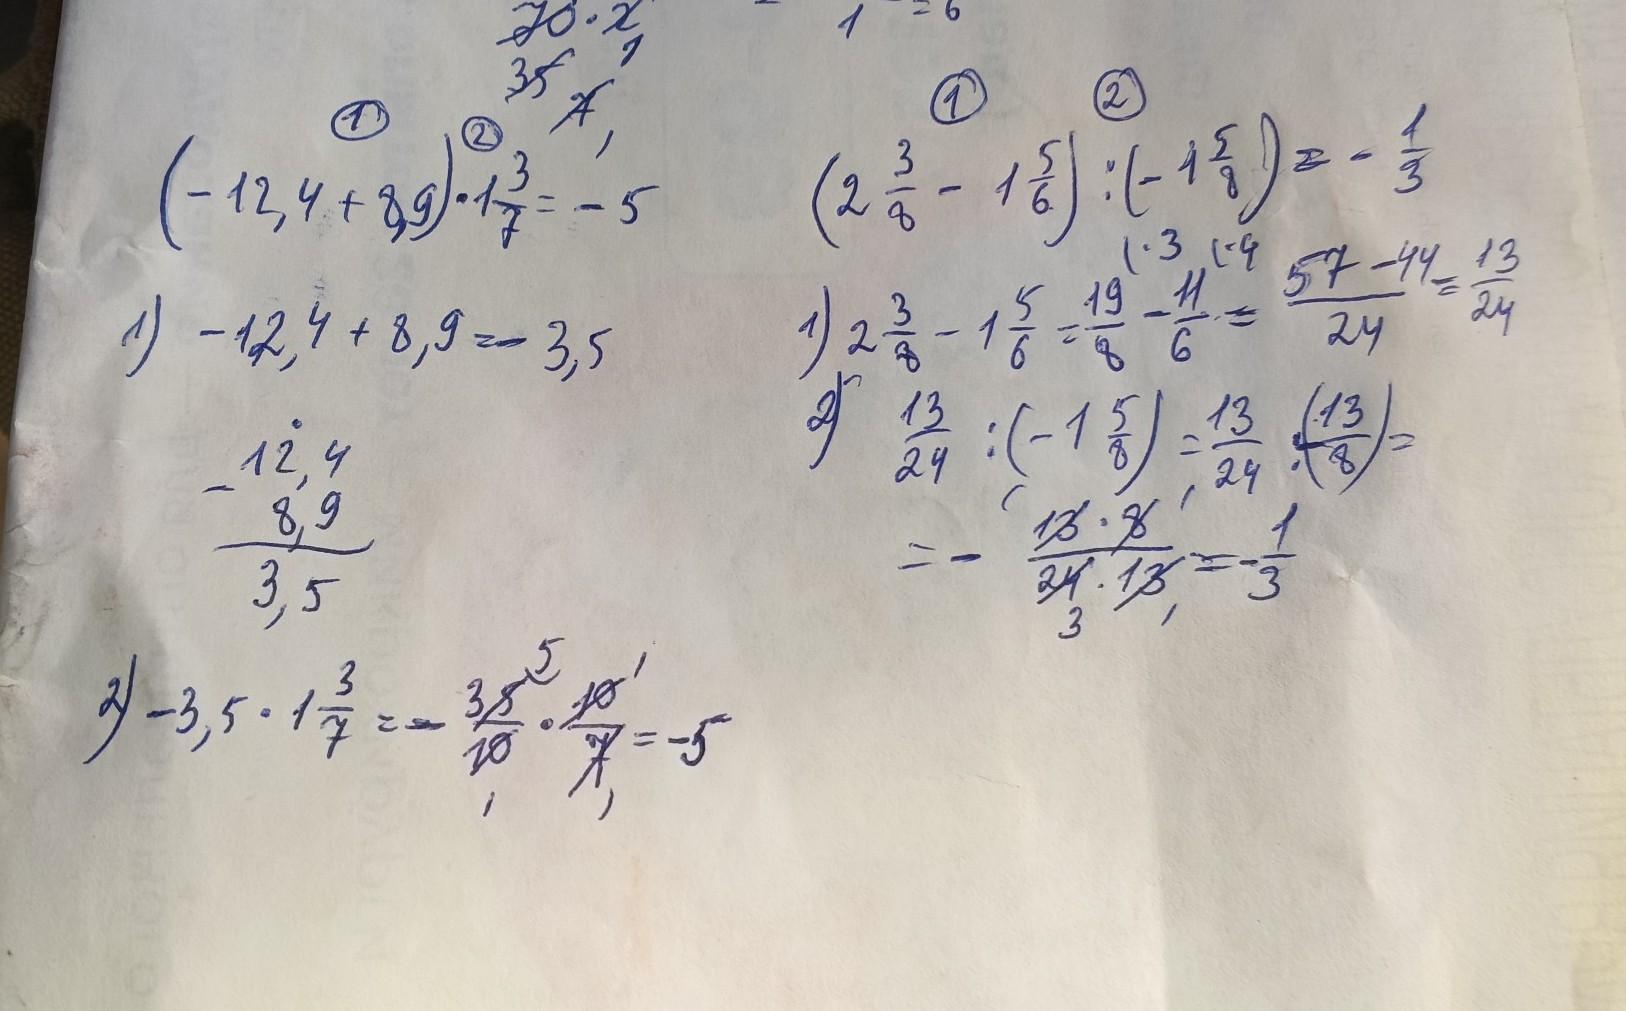 70 · 2
35 7
1 = 6
① ②
(-12,4 + 8,9) · 1 3/7 = -5
1) -12,4 + 8,9 = -3,5
12,4
- 8,9
3,5
2) -3,5 · 1 3/7 = - 35/10 · 10/7 = -5
5
① ②
(2 3/8 - 1 5/6) : (-1 5/8) = - 1/3
(·3 (·4
1) 2 3/8 - 1 5/6 = 19/8 - 11/6 = 57-44/24 = 13/24
2) 13/24 : (-1 5/8) = 13/24 : (-13/8) =
= - 13 · 8/24 · 13 = - 1/3
3